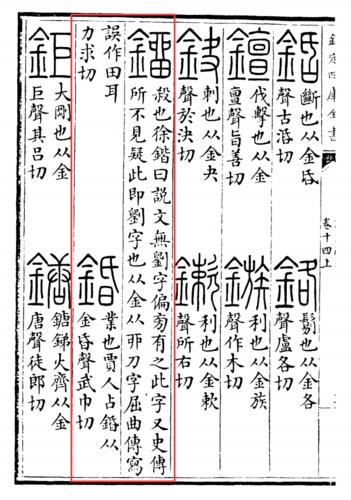 欽定四庫全書
卷十四上
斷也从金昏
聲古活切
鉻
鬄也从金各
聲盧各切
伐擊也从金
亶聲旨善切
鏃
利也从金族
聲作木切
鈌
刺也从金夬
聲於決切
鏉
利也从金欶
聲所右切
鎦
殺也徐鍇曰說文無劉字偏旁有之此字又史傳
所不見疑此即劉字也从金从丣刀字屈曲傳寫
誤作田耳
力求切
錉
業也賈人占錉从
金昏聲武巾切
鉅
大剛也从金
巨聲其呂切
鎕
鎕銻火齊也从金
唐聲徒郎切